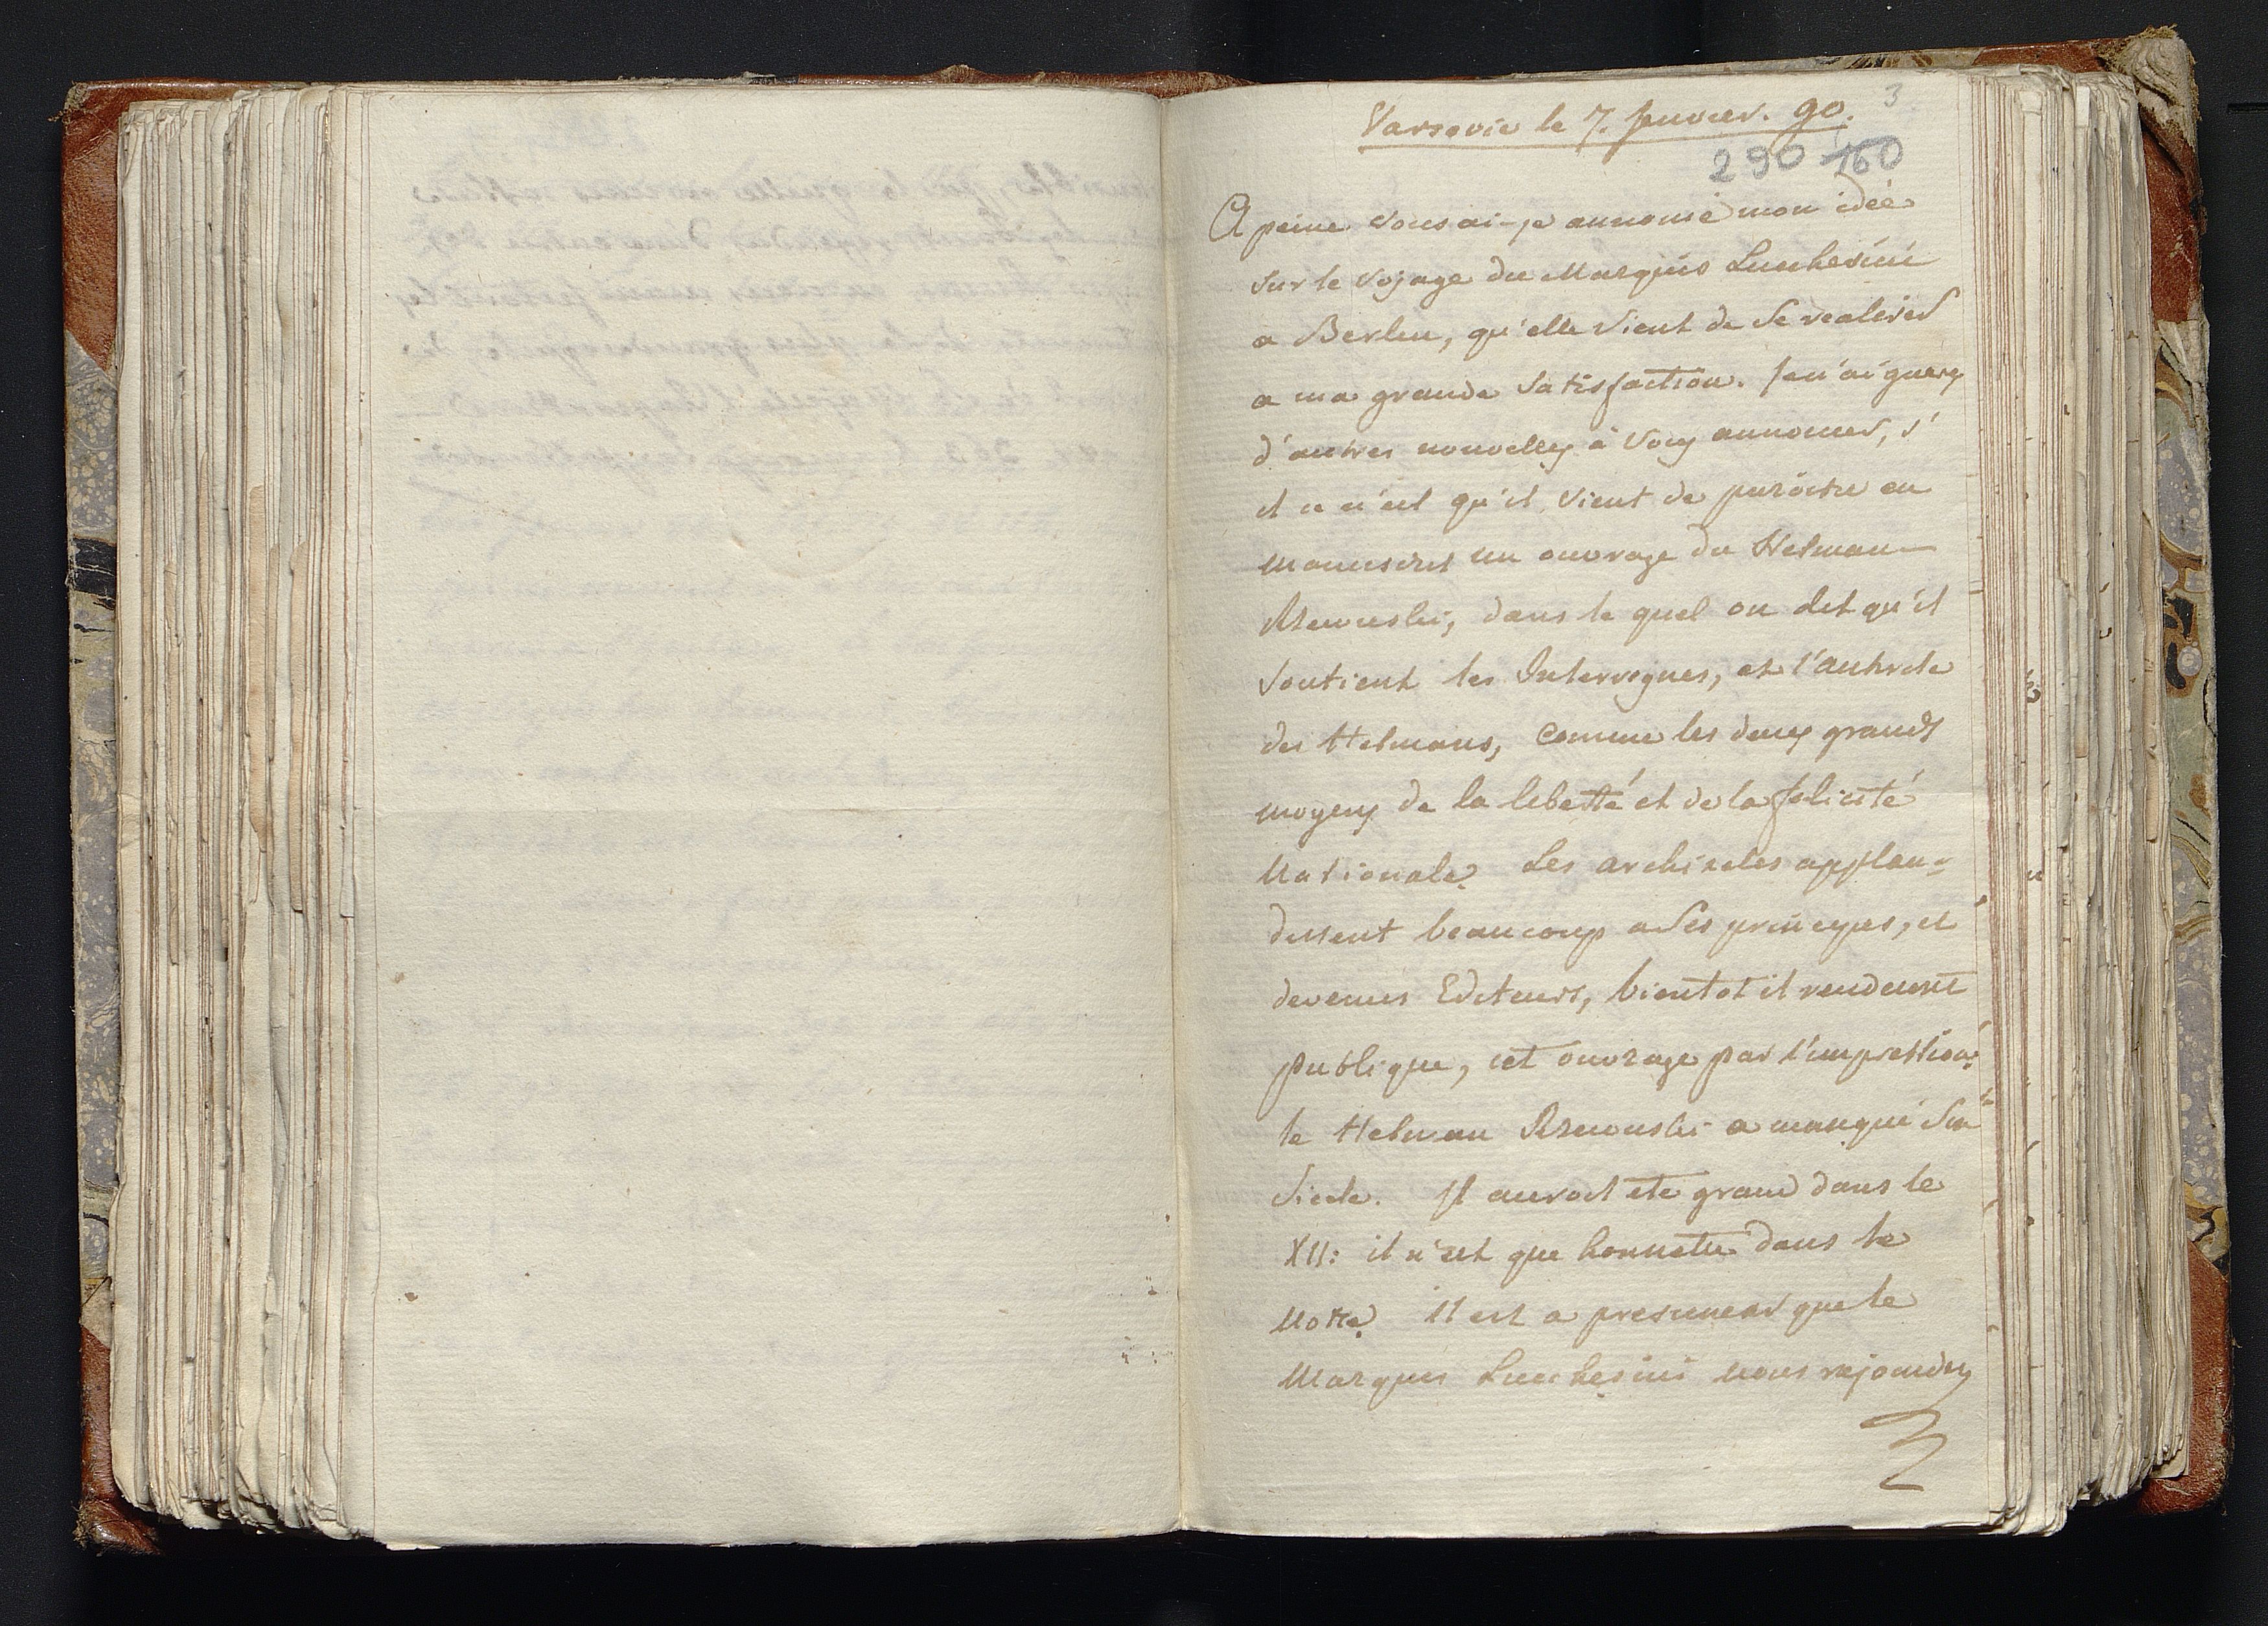 Varsovie le 7. Janvier. 90. 3
290 160
A peine vous ai-je annoncé mon idée
sur le voyage du Marquis Lucchesini
a Berlin, qu'elle vient de se realiser
a ma grande satisfaction. Je n'ai guere
d'autres nouvelles à vous annoncer, s'
il ce n'est qu'il vient de paroitre en
manuscrit un ouvrage du Hetman
Rzewuski, dans le quel on dit qu'il
soutient les Interregnes, et l'autorite
des Hetmans, comme les deux grands
moyens de la liberté et de la felicité
Nationale. Les archizeles applau-
dissent beaucoup a ses principes, et
devenus Editeurs, bientot il renderont
publique, cet ouvrage par l'impression.
le Hetman Rzewuski a manqué son
siecle. Il auroit ete grand dans le
XII: il n'est que honnete dans le
Notre. Il est a presumer que le
Marquis Lucchesini nous rejoindra